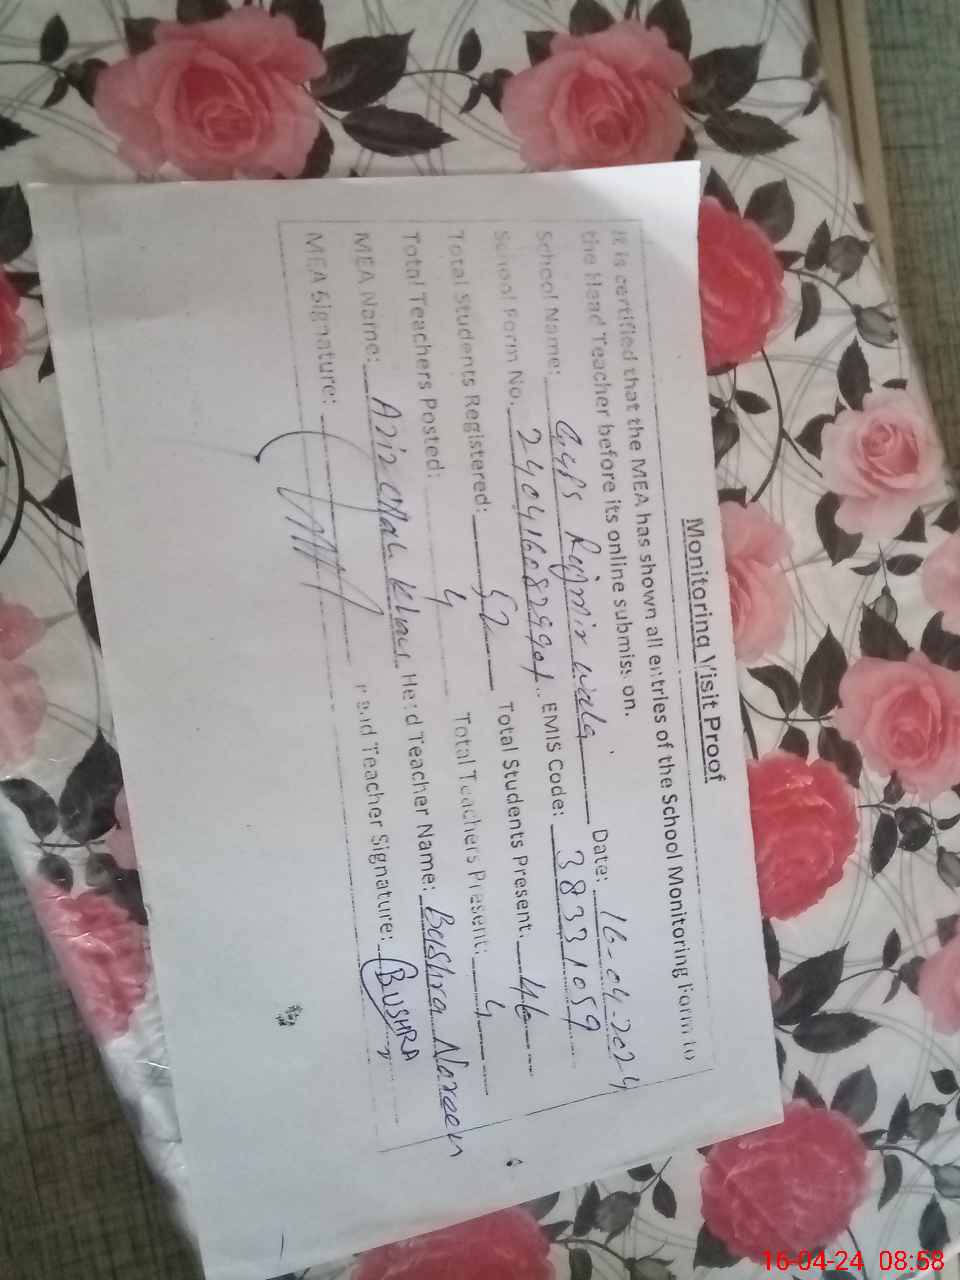 Monitoring Visit Proof
It is certified that the MEA has shown all entries of the School Monitoring Form to
the Head Teacher before its online submission.
School Name: GGPS Rujmir wala Date: 16-04-2024
School Form No. EMIS Code: 38331059
Total Students Registered: 52 Total Students Present. 46
Total Teachers Posted: 4 Total Teachers Present: 4
MEA Name: Khan Head Teacher Name: Bushra Naxeen
MEA Signature: Head Teacher Signature: BUSHRA
16-04-24 08:58